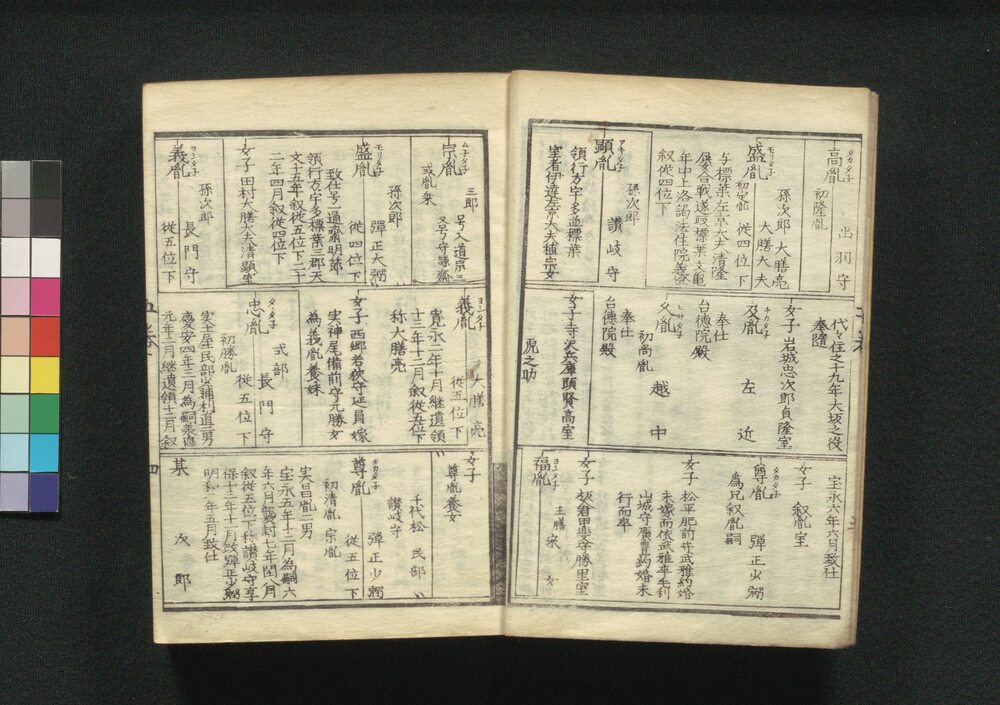 タカタ子
高胤 出羽守
初隆胤
モリタ子
盛胤 孫次郎 大膳亮
大膳大夫
初定胤 従四位下
与標葉左京大夫清隆
屡合戦遂取標葉文亀
年中上洛謁法住院義澄
叙従四位下
アキタ子
顕胤 讃岐守
孫次郎
領行方宇多並標葉
室者伊達左京大夫植宗女
代々住之十九年大坂之役
奉随
女子 岩城忠次郎貞隆室
チカタ子
及胤 左近
奉仕
台徳院殿
ヒサタ子
久胤 越中
初尚胤
奉仕
台徳院殿
女子 寺沢兵庫頭賢高室
虎之助
宝永六年六月致仕
女子 叙胤室
タカタ子
尊胤 弾正少弼
為兄叙胤嗣
女子 松平肥前守武雅約婚
未嫁而依武雅卒毛利
山城守廣豊約婚未
行而卒
女子 板倉甲斐守勝里室
ヨシタ子
福胤 主膳 采女
ム子タ子
宗胤 三郎
号入道宗二
又号守謙斎
或胤乗
モリタ子
盛胤 弾正大弼
孫次郎 従四位下
致仕号一通斎明節
領行方宇多標葉三郡天
文十五年叙従五位下二十
二年四月叙従四位下
女子 田村大膳大夫清顕室
ヨシタ子
義胤 長門守
孫次郎 従五位下
ヨシタ子
義胤 大膳亮
従五位下
寛永二年十月継遺領
十三年十二月叙従五位下
称大膳亮
女子 西郷若狭守延員嫁
実神尾備前守元勝女
為義胤養妹
タヽタ子
忠胤 長門守
式部 従五位下
初勝胤
実土屋民部少輔利直二男
慶安四年三月為嗣承應
元年二月継遺領十二月叙
女子
尊胤養女
千代松 民部
讃岐守
タカタ子
尊胤 弾正少弼
従五位下
初清胤 宗胤
実昌胤二男
宝永五年十二月為嗣六
年六月襲封七年閏八月
叙従五位下称讃岐守享
保十三年十一月改弾正少弼
明和二年五月致仕
某 次郎